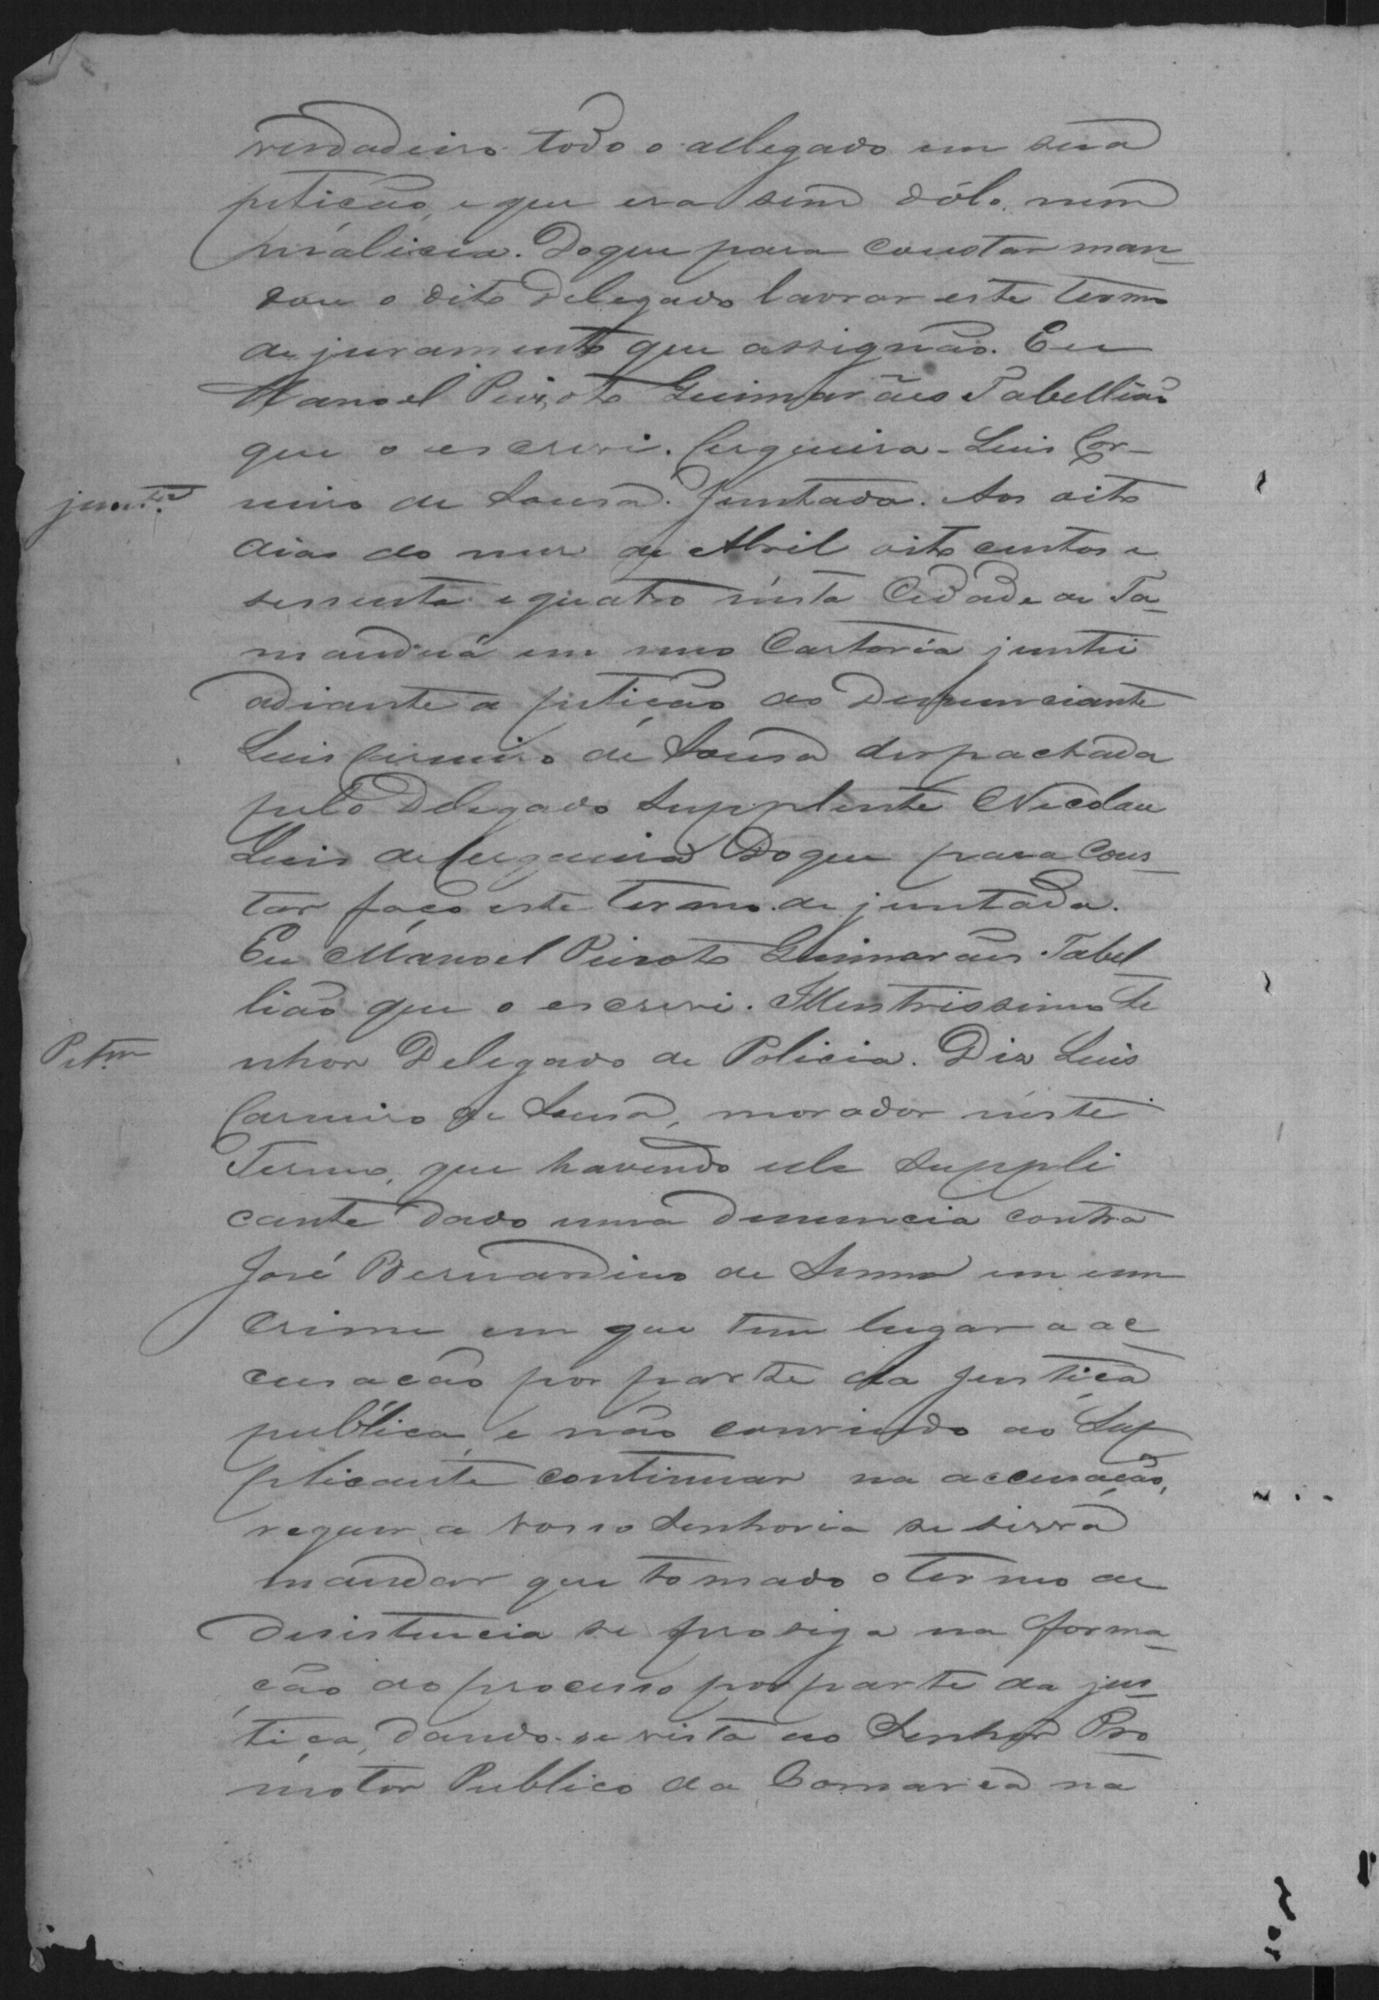 verdadeiro todo o allegado em sua
petição, e que era sem dólo, nem
málicia. Do que para constar man-
dou o dito Delegado lavrar este termo
de juramento que assignão. Eu
Manoel Peixoto Guimarães Tabellião
que o escrevi. Cerqueira - Luis Car-
juntda neiro de Sousa. Juntada. Aos oito
dias do mez de Abril oito centos e
sessenta e quatro nésta Cidade de Ta-
manduá em meo Cartorio juntei
adiante a petição do Denunciante
Luis Carneiro de Sousa despachada
pelo Delegado Supplente Nicolau
Luis de Cerqueira Do que para Cons-
tar faço este termo de juntada.
Eu Manoel Peixoto Guimarães Tabel
lião que o escrevi. Illustrissimo Se
Petam nhor Delegado de Policia. Diz Luis
Carneiro de Sousa, morador néste
Termo, que havendo elle Suppli
cante dado uma denuncia contra
José Bernardino de Senna em um
crime em que tem lugar a ac-
cusacão por parte da Justiça
publica, e não convindo ao Sup
plicante continuar na accusação,
requer a Vossa Senhoria se sirva
mandar que tomado o termo de
desistencia se prosiga na forma-
ção do processo por parte da jus-
tiça, dando-se vista ao Senhor Pro
motor Publico da Comarca na